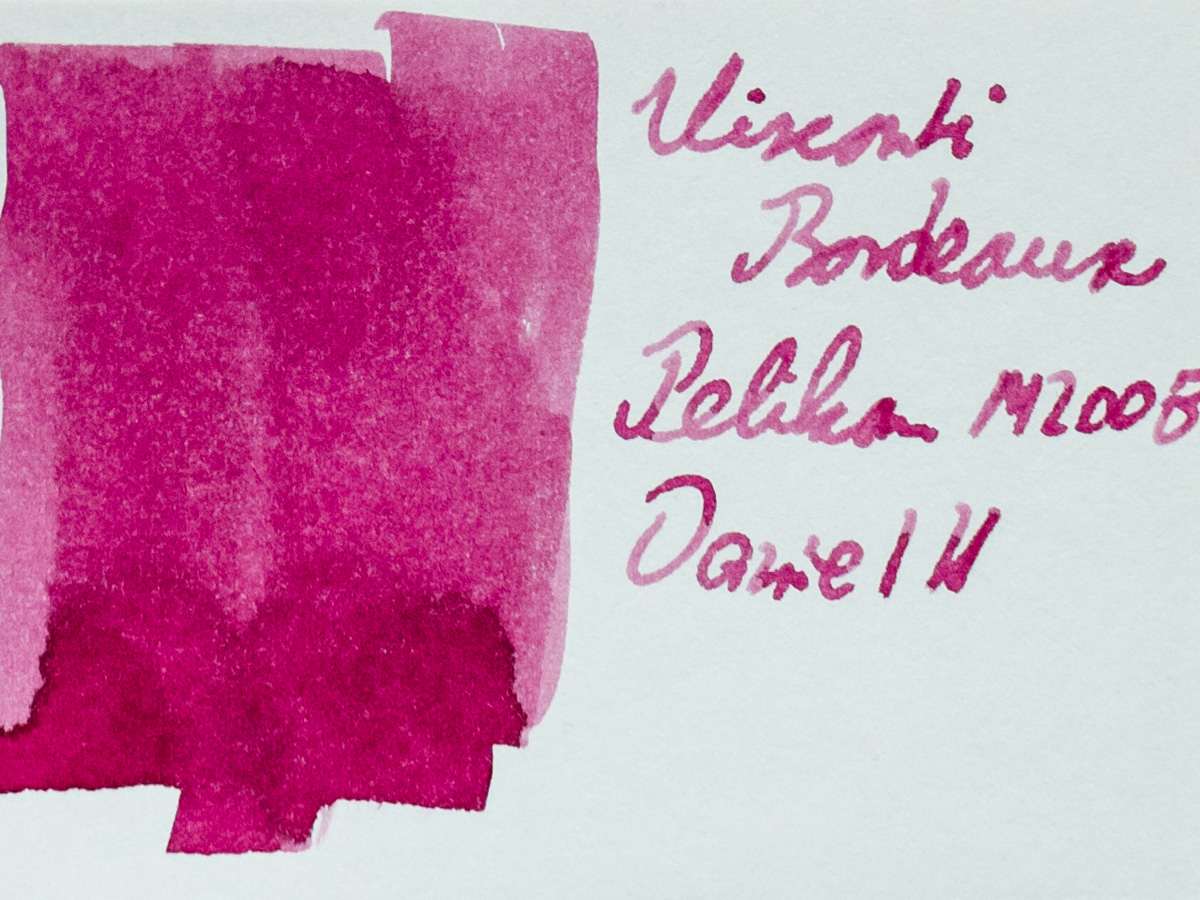 Visconti
Bordeaux
Pelikan M200B
Daniel W